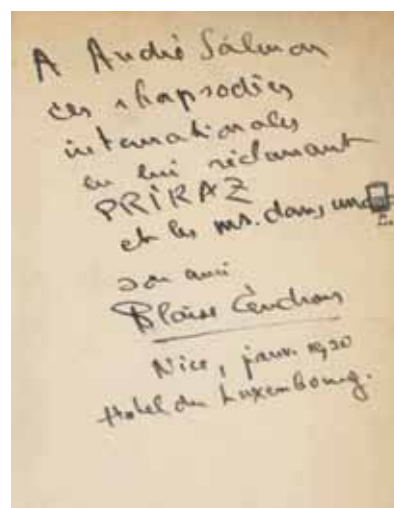 A André Salmon
ces rhapsodies
internationales
en lui réclamant
PRIKAZ
et les ms. dans une
son ami
Blaise Cendrars
Nice, janv. 1920
Hotel du Luxembourg.